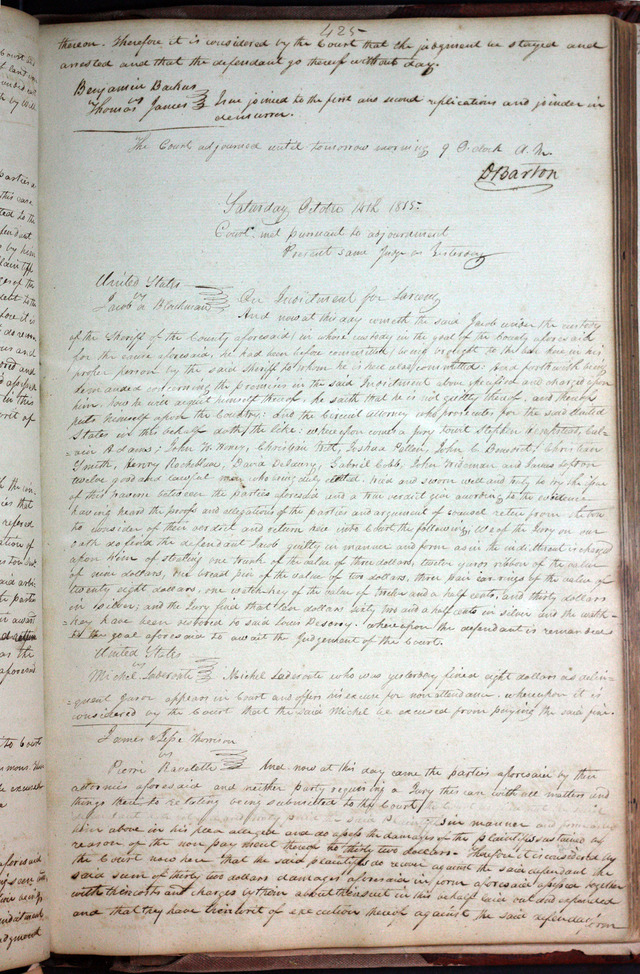 425
thereon. Therefore it is considered by the Court that the judgment be stayed and
arrested and that the defendant go thereof without day.
Benjamin Backus
vs
Thomas James Issue joined to the first and second replications and joinder in
demurrer.
The Court adjourned until tomorrow morning 9 O.clock A.M.
D Barton
Saturday October 14th 1815
Court met pursuant to adjournment
Present same Judge as Yesterday
United States
vs
Jacob a Blackman On Indictment for Larceny
And now at this day cometh the said Jacob under the custody
of the Sheriff of the County aforesaid, in whose custody in the goal of the County aforesaid
for the cause aforesaid, he had been before committed, being brought to the bar here in his
proper person by the said Sheriff to whom he is here also committed: and forthwith being
demanded concerning the premises in the said Indictment above specified and charged upon
him how he will acquit himself thereof, he saith that he is not guilty thereof, and thereof
puts himself upon the Country: and the Circuit attorney who prosecutes for the said United
States in this behalf doth the like: whereupon came a Jury to wit Stephen
Adams; John W. Christian Witt, Joshua John C. Christian
Smith, Henry David Delauny, Gabriel Cobb, John Wideman and James
twelve good and lawful men who being duly elected tried and sworn well and truly to try the Issue
of this traverse between the parties aforesaid and a true verdict give according to the evidence
having heard the proofs and allegations of the parties and argument of counsel retire from the bar
to consider of their verdict and return now into Court the following, We of the Jury on our
oath do find the defendant Jacob guilty in manner and form as in the indictment is charged
upon him of stealing one trunk of the value of three dollars, twelve yards ribbon of the value
of nine dollars, one breast pin of the value of two dollars, three pair ear rings of the value of
twenty eight dollars, one watch key of the value of twelve and a half cents, and thirty dollars
in silver; and the Jury find that ten dollars sixty two and a half cents in silver and the watch
key have been restored to said Louis whereupon the defendant is remanded
to the goal aforesaid to await the Judgement of the Court.
United States
vs
Michel Laderoute Michel Laderoute who was yesterday fined eight dollars as delin-
quent Juror appears in Court and offers his excuse for non attendance. whereupon it is
considered by the Court that the said Michel be excused from paying the said fine.
James & Jesse Morrison
vs
Pierre Ravelette And now at this day came the parties aforesaid by their
attornies aforesaid and neither party requiring a Jury this case with all matters and
things thereto relating being submitted to the Court,
in manner and form as
him above in his plea alleged and do assess the damages of the plaintiffs sustained by
reason of the non payment thereof to thirty two dollars. Therefore it is considered by
the Court now here that the said plaintiffs do recover against the said defendant the
said sum of thirty two dollars damages aforesaid in form aforesaid assessed together
with their costs and charges by them about their suit in this behalf laid out and expended
and that they have their writ of execution thereof against the said defendant